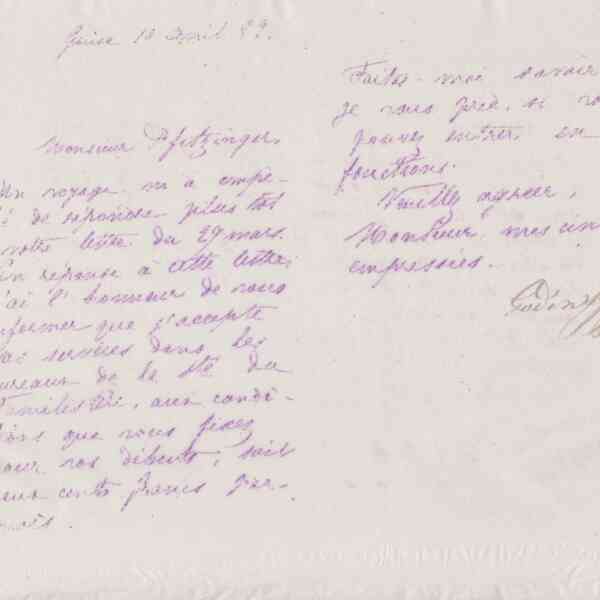 Guise 10 avril 89.
Monsieur Pfetzinger,
Un voyage m'a empê-
é de répondre plus tôt
votre lettre du 29 mars.
En réponse à cette lettre
j'ai l'honneur de vous
nformer que j'accepte
vos services dans les
ureaux de la Sté du
Familistère, aux condi-
tions que vous fixez
pour vos débuts, soit
eux cents francs par
mois.
Faites-moi savoir
je vous prie, si vo
pouvez entrer en
fonctions.
Veuillez agréer,
Monsieur, mes
empressées.
Godin